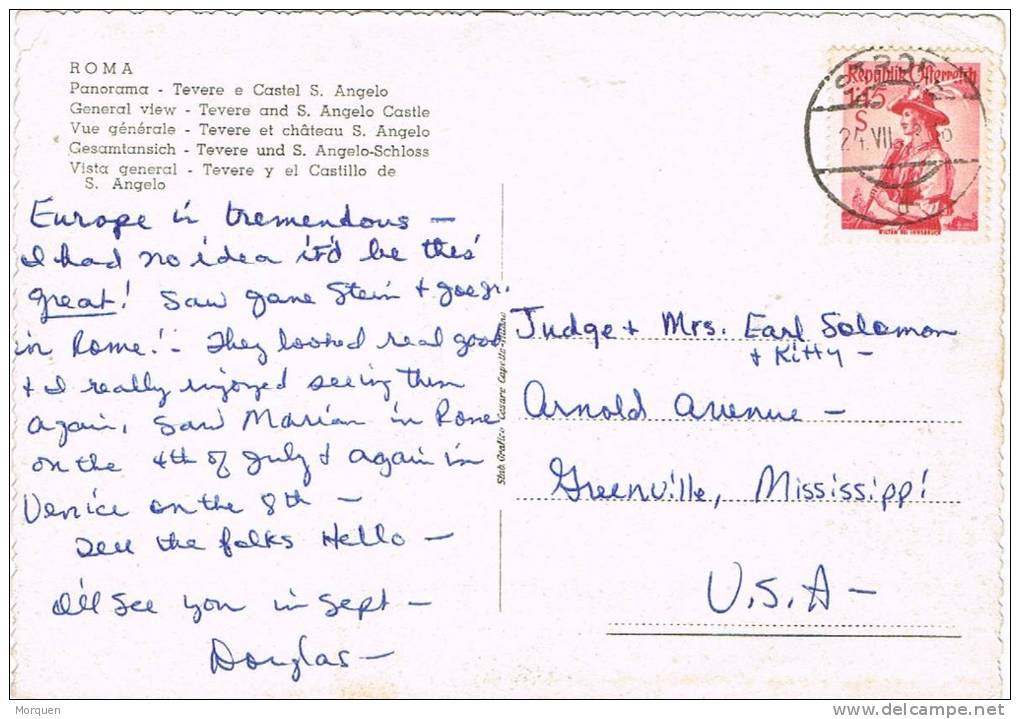 ROMA
Panorama - Tevere e Castel S. Angelo
General view - Tevere and S. Angelo Castle
Vue générale - Tevere et château S. Angelo
Gesamtansich - Tevere und S. Angelo-Schloss
Vista general - Tevere y el Castillo de
S. Angelo
Europe is tremendous —
I had no idea it'd be this
great! Saw Jane Stein + Joe Jr.
in Rome! - They looked real good
+ I really enjoyed seeing them
again. Saw Marian in Rome
on the 4th of July + again in
Venice on the 8th —
Tell the folks Hello —
I'll see you in Sept —
Douglas —
Stab. Grafico Cesare Capello
Republik Österreich
1.45
S
24.VII.
Judge + Mrs. Earl Solomon
+ Kitty —
Arnold Avenue —
Greenville, Mississippi
U.S.A —
Morquen
www.delcampe.net